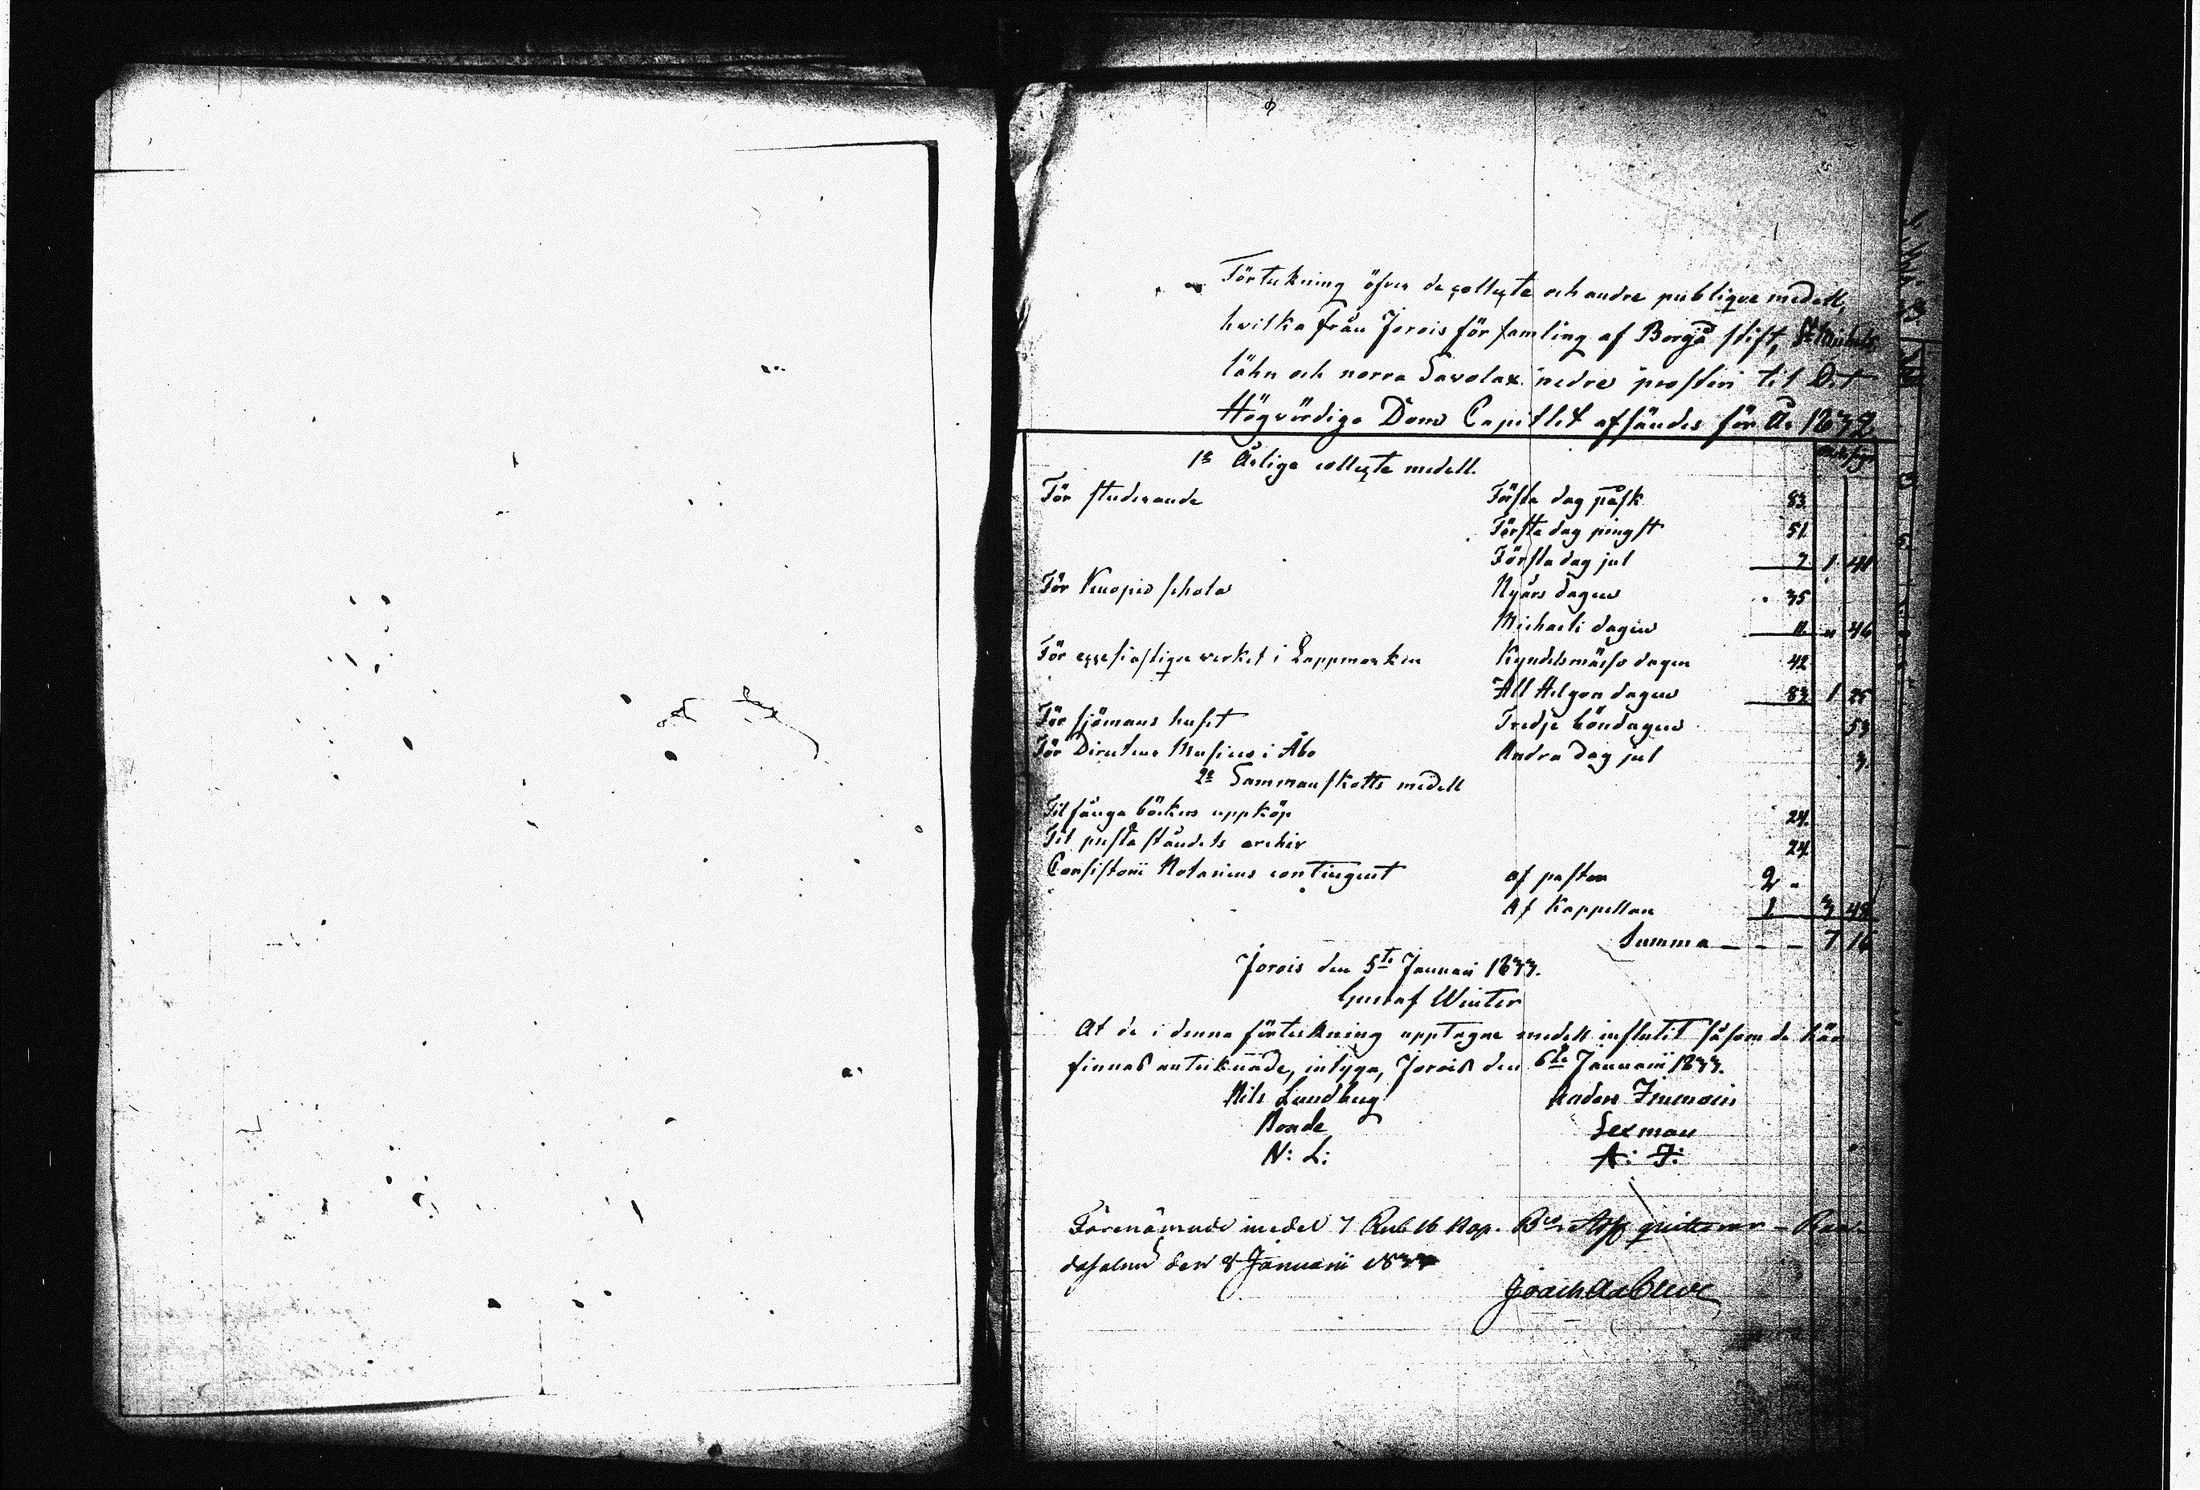 Förtekning öfver de collecte och andre publique medell,
hvilka från Jorois församling af Borgå stift, St Michels
lähn och norra Savolax nedre prosteri til Det
Högvördige Dom Capitlet afsändes för År 1832
1º Årlige collecte medell.
För studerande Första dag påsk 83.
Första dag pingst 51.
Första dag jul 7. 1 41
För Kuopio schola Nyårs dagen 35
Michaeli dagen 11. " 46
För eccesiastique verket i Lappmarken Kyndelsmässo dagen 42
All Helgon dagen 83 1 25
För sjömans huset Tredje böndagen 53
För Directeur Musices i Åbo Andra dag jul 3.
2º Sammanskotts medell
Til fånga böckers uppköp 24.
Til presta ståndets archiv 24
Consistorii Notariens contingent af pastor 2 -
Af Kappellan 1 3 48
Summa - - - 7 16
Jorois den 5te Januari 1833.
Gustaf Winter
At de i denna förtekning upptagne medell influtit såsom de här
finnas anteknade, intyga, Jorois den 6te Januarii 1833.
Nils Lundberg Anders Immoin
Bonde Sexman
N: L: A: I:
Förenämnde medel 7 Rub 16 Kop. Bco Ass quitteras -
den 8 Januarii 1833